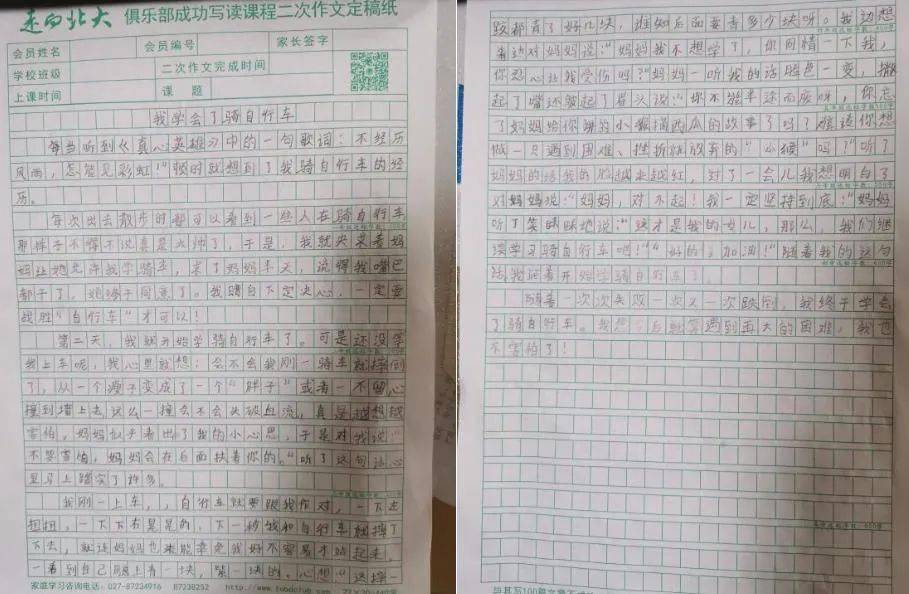 走向北大 俱乐部成功写读课程二次作文定稿纸
会员姓名 会员编号 家长签字
学校班级 二次作文完成时间
上课时间 课题
我学会了骑自行车
每当听到《真心英雄》中的一句歌词:“不经历
风雨,怎能见彩虹!”顿时就想到了我骑自行车的经
历。
每次出去散步的都可以看到一些人在骑自行车,
那样子不得不说真是太帅了,于是,我就央求着妈
妈让她允许我学骑车,求了妈妈半天,说得我嘴巴
都干了,她终于同意了。我暗自下定决心,一定要
战胜“自行车”才可以!
第二天,我就开始学骑自行车了。可是还没等
我上车呢,我心里就想:会不会我刚一骑车就摔倒
了,从一个瘦子变成了一个“胖子”或者一不留心
撞到墙上去,这么一撞会不会头破血流,真是越想越
害怕。妈妈似乎看出了我的小心思,于是对我说:“
不要害怕,妈妈会在后面扶着你的。”听了这句话心
里马上踏实了许多。
我刚一上车,,自行车就要跟我作对,一下左
扭扭,一下下右晃晃的,下一秒我和自行车就摔了
下去,就连妈妈也未能幸免我好不容易才站起来,
一看到自己腿上青一块,紫一块的。心想“这摔一
家庭学习咨询电话:027-87224916 87238252
跤都青了好几块,谁知后面要青多少块呀。我边想
着边对妈妈说:“妈妈我不想学了,你同情一下我,
你忍心让我受伤吗?”妈妈一听我的话脸色一变,撇
起了嘴还皱起了眉头说:“你不能半途而废呀,你忘
了妈妈给你讲的小猴摘西瓜的故事了吗?难道你想
做一只遇到困难、挫折就放弃的“小猴”吗?”听了
妈妈的话我的脸越来越红,对了一会儿我想明白了
对妈妈说:“妈妈,对不起!我一定坚持到底!”妈妈
听了笑眯眯地说:“这才是我的女儿,那么,我们继
续学习骑自行车吧!”“好的!加油!”随着我的这句
话我们着开始学骑自行车了。
随着一次次失败一次又一次跌倒,我终于学会
了骑自行车。我想今后就算遇到再大的困难,我也
不害怕了!